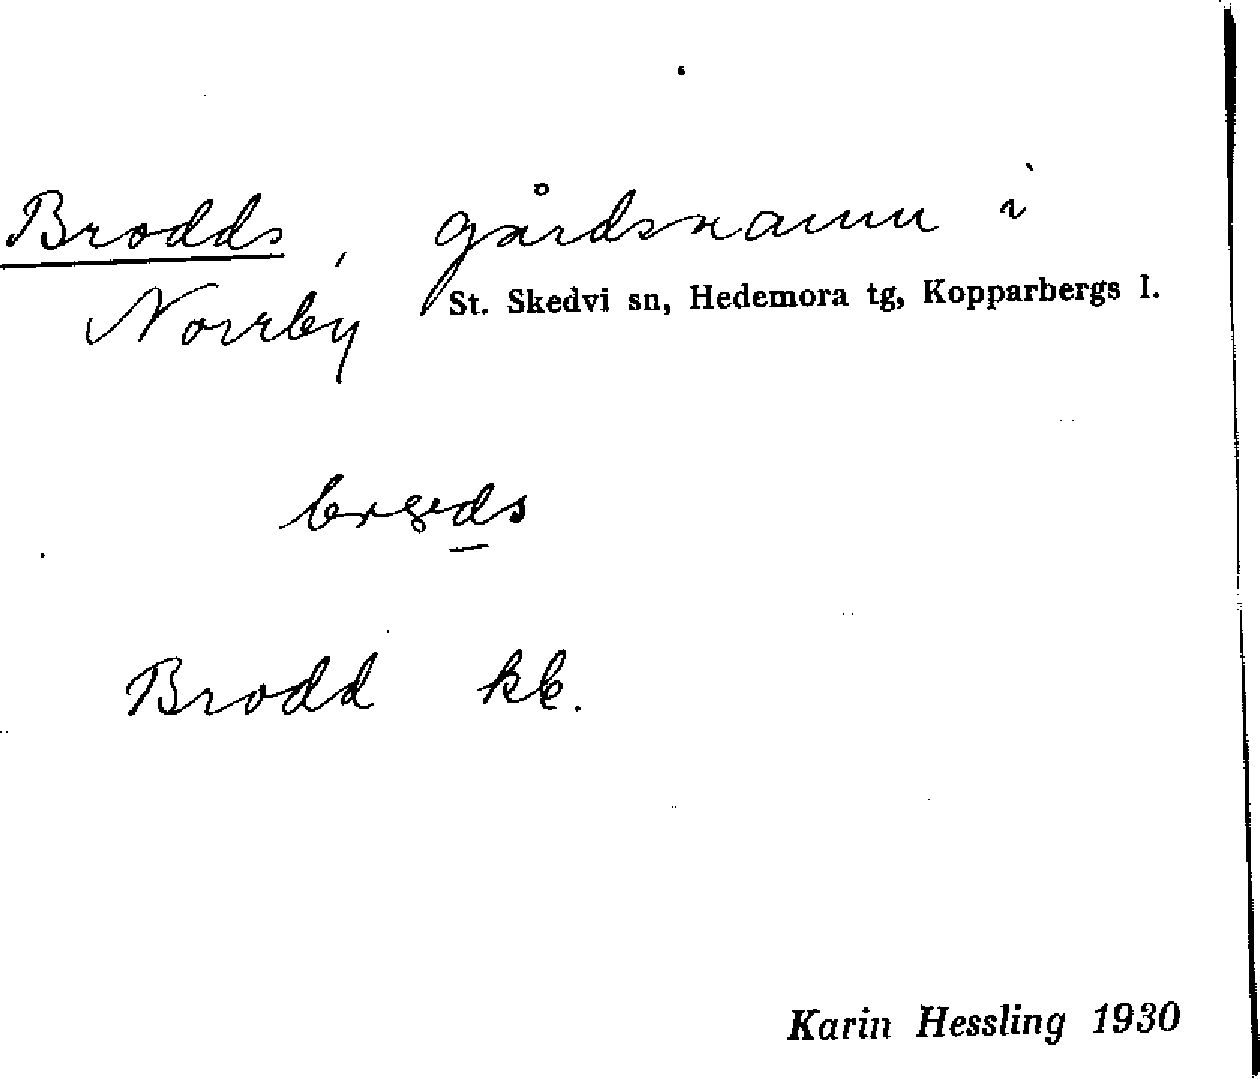 Brodds, gårdsnamn i
Norrby St. Skedvi sn, Hedemora tg, Kopparbergs l.
Brodd kb.
Karin Hessling 1930